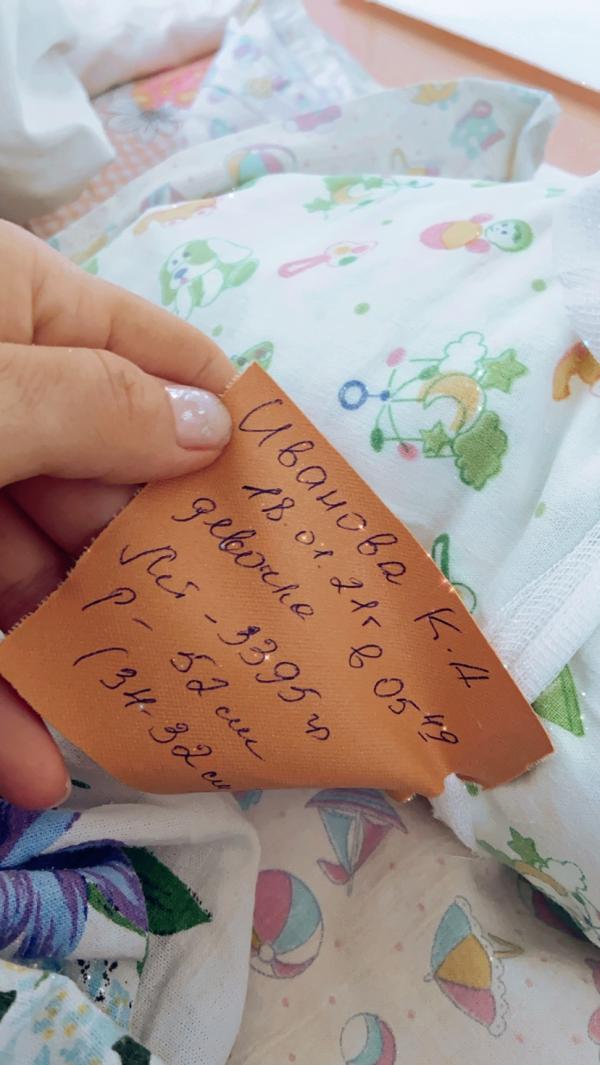 Иванова К.А
18.01.21г в 05 49
девочка
Вес - 3395 гр
р - 52 см
(34-32 см